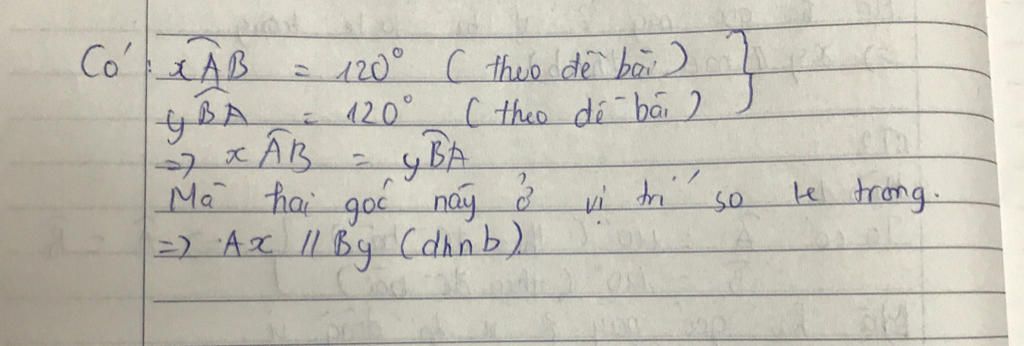 Có: xÂB = 120° ( theo đề bài )
yB̂A = 120° ( theo đề bài ) }
=> xÂB = yB̂A
Mà hai góc này ở vị trí so le trong.
=> Ax // By (dhnb).